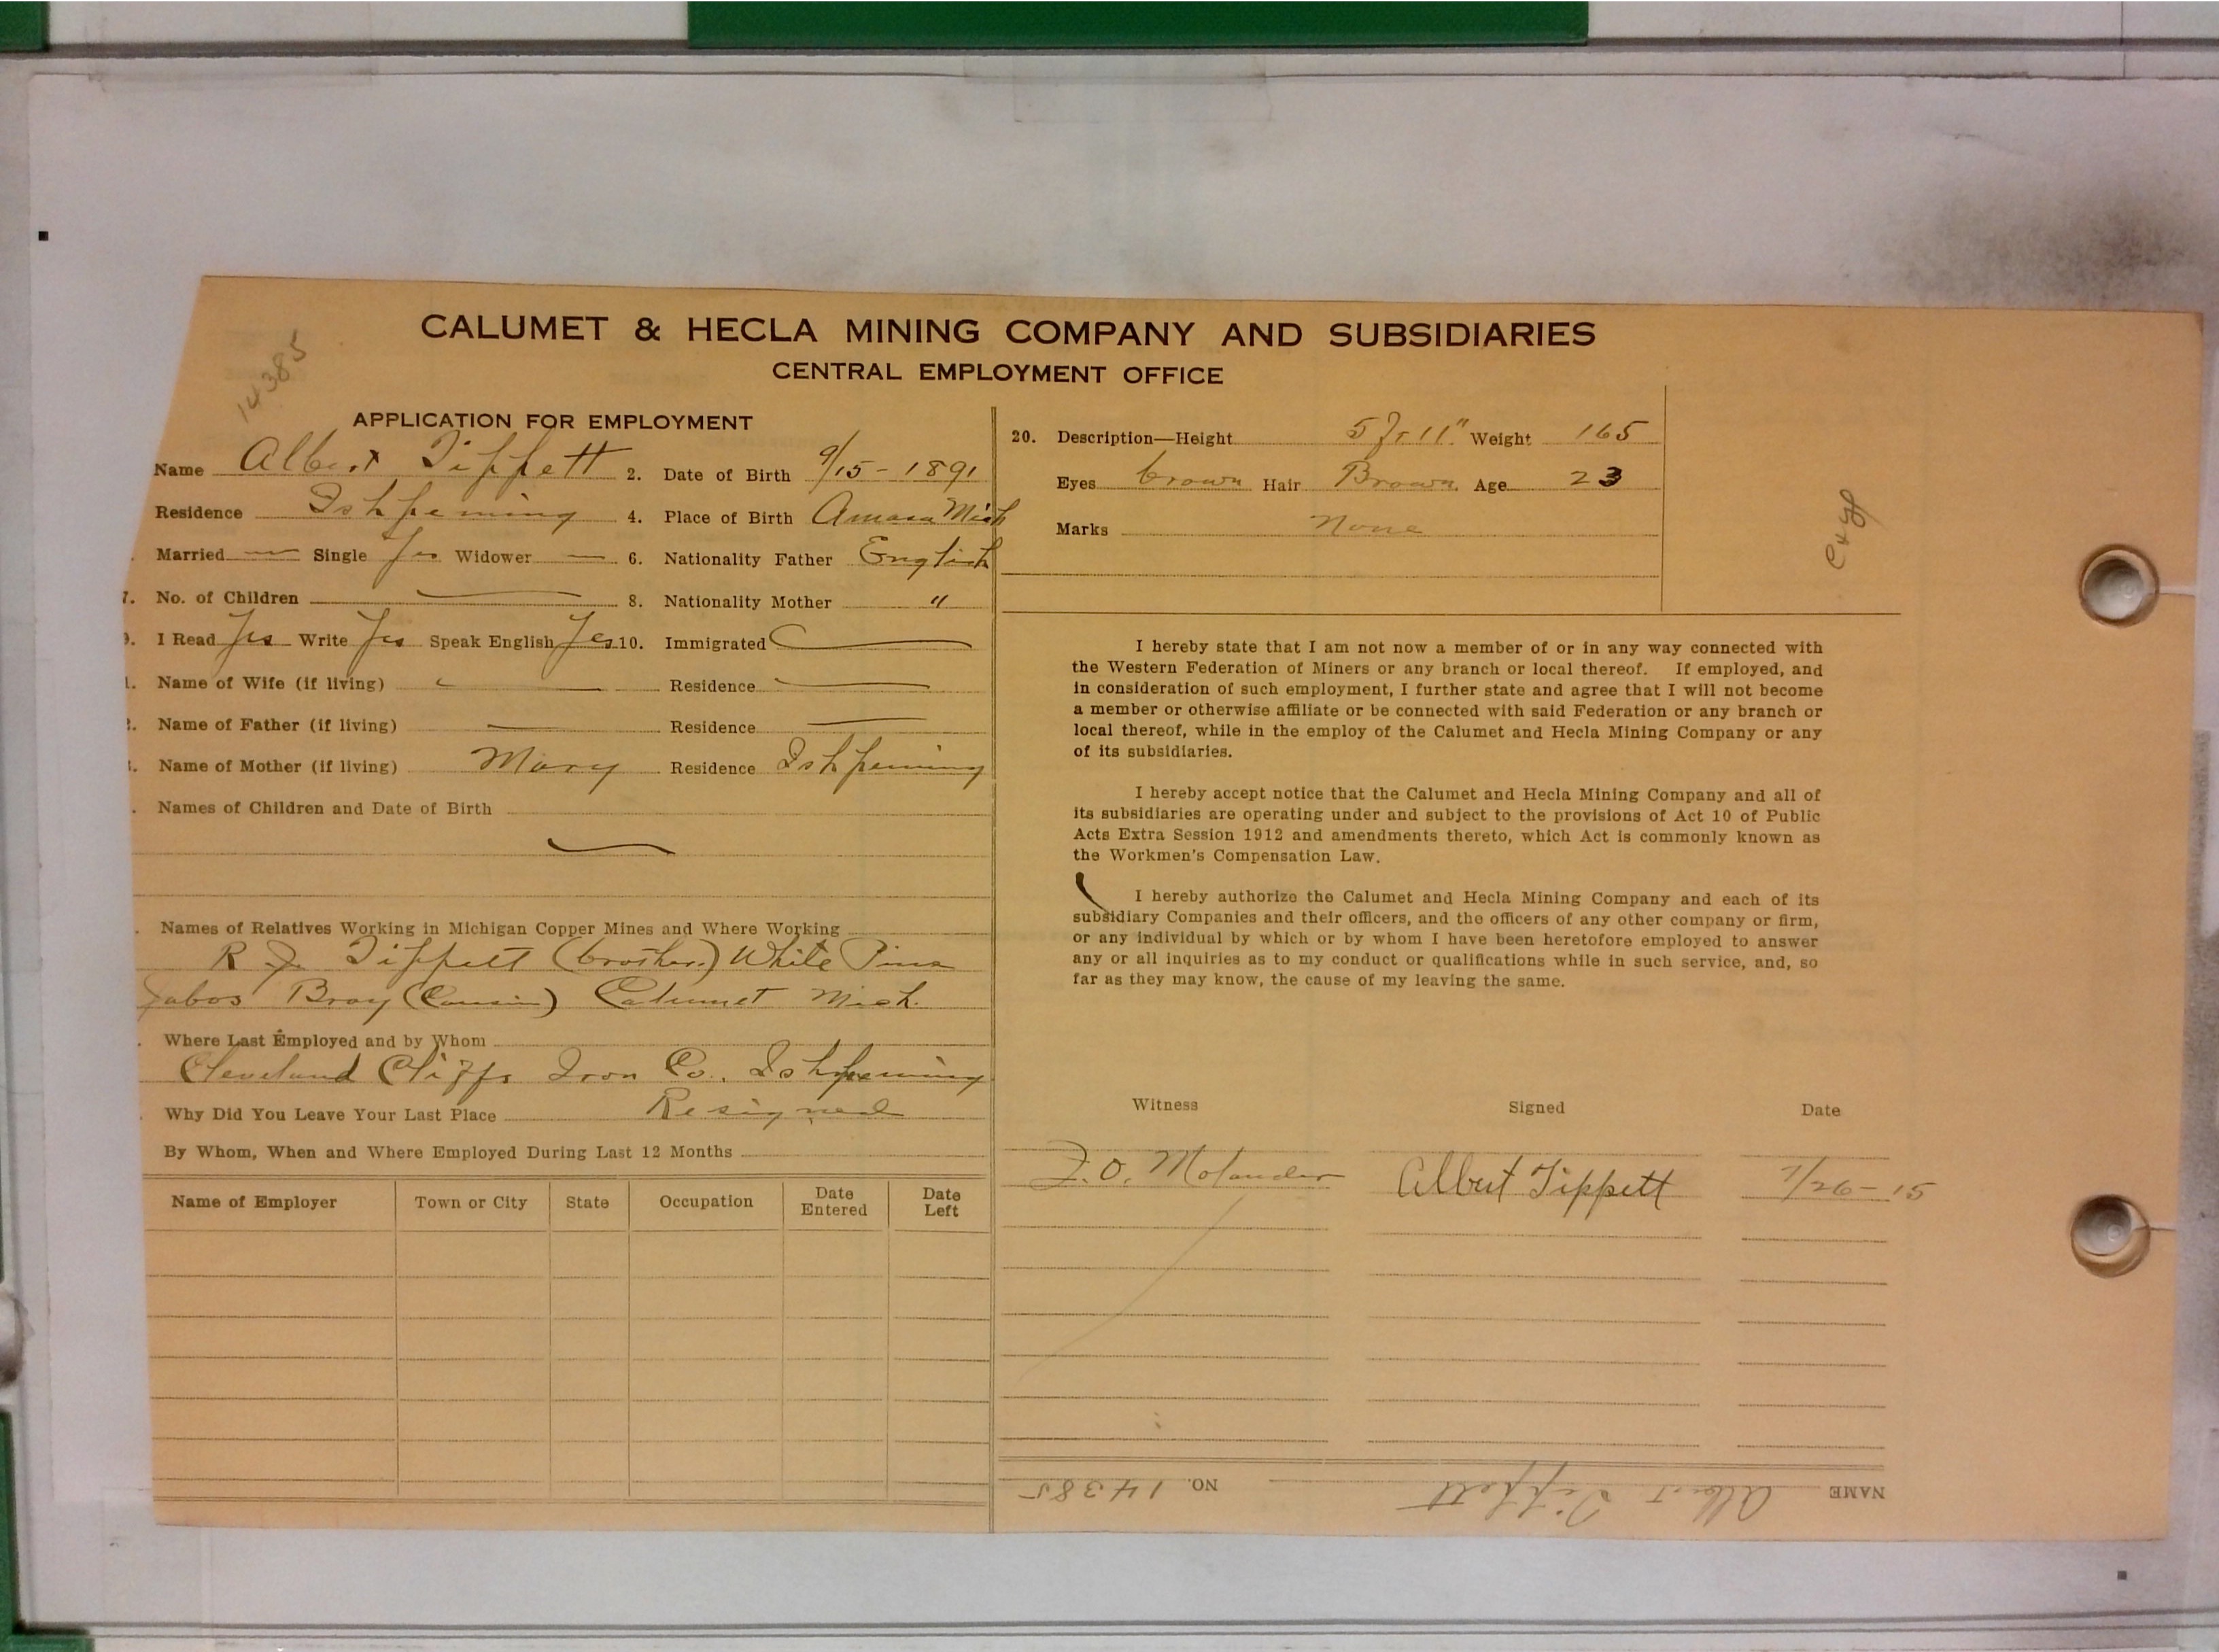 14385
CALUMET & HECLA MINING COMPANY AND SUBSIDIARIES
CENTRAL EMPLOYMENT OFFICE
APPLICATION FOR EMPLOYMENT
Name Albert Tippett 2. Date of Birth 9/15-1891
Residence Ishpeming 4. Place of Birth Amasa Mich
Married — Single Yes Widower — 6. Nationality Father English
7. No. of Children — 8. Nationality Mother "
9. I Read Yes Write Yes Speak English Yes 10. Immigrated —
Name of Wife (if living) — Residence —
Name of Father (if living) — Residence —
Name of Mother (if living) Mary Residence Ishpeming
Names of Children and Date of Birth
—
Names of Relatives Working in Michigan Copper Mines and Where Working
R J. Tippett (brother) White Pine
Jabos Bray (Cousin) Calumet Mich.
Where Last Employed and by Whom
Cleveland Cliffs Iron Co. Ishpeming
Why Did You Leave Your Last Place Resigned
By Whom, When and Where Employed During Last 12 Months
Name of Employer Town or City State Occupation Date Entered Date Left
20. Description—Height 5 ft 11" Weight 165
Eyes brown Hair Brown Age 23
Marks None
I hereby state that I am not now a member of or in any way connected with
the Western Federation of Miners or any branch or local thereof. If employed, and
in consideration of such employment, I further state and agree that I will not become
a member or otherwise affiliate or be connected with said Federation or any branch or
local thereof, while in the employ of the Calumet and Hecla Mining Company or any
of its subsidiaries.
I hereby accept notice that the Calumet and Hecla Mining Company and all of
its subsidiaries are operating under and subject to the provisions of Act 10 of Public
Acts Extra Session 1912 and amendments thereto, which Act is commonly known as
the Workmen's Compensation Law.
I hereby authorize the Calumet and Hecla Mining Company and each of its
subsidiary Companies and their officers, and the officers of any other company or firm,
or any individual by which or by whom I have been heretofore employed to answer
any or all inquiries as to my conduct or qualifications while in such service, and, so
far as they may know, the cause of my leaving the same.
Witness Signed Date
F.O. Molander Albert Tippett 7/26-15
NAME Albert Tippett NO. 14385